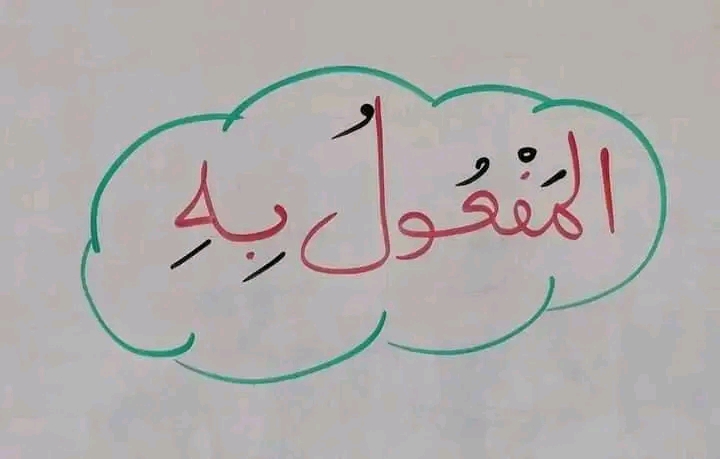 المَفْعُولُ بِهِ